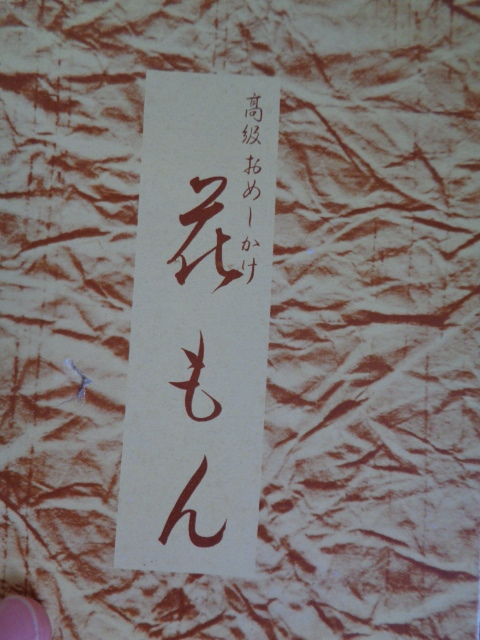 高級おめしかけ
花もん